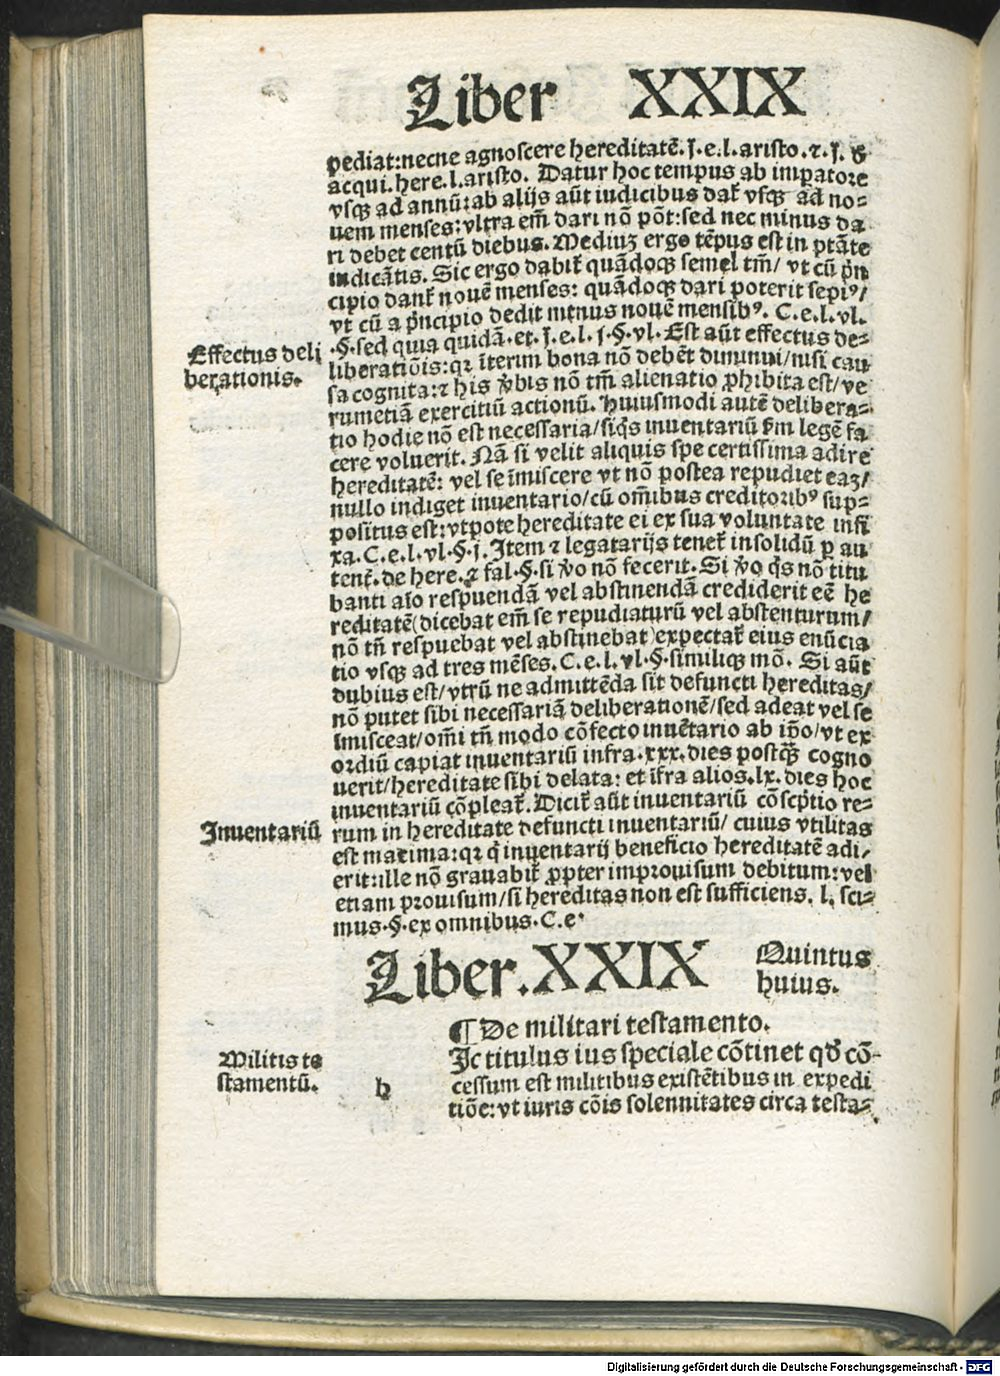 Liber XXIX
pediat:necne agnoscere hereditatē.ſ.e.l.aristo.⁊.ſ. de
acqui.here.l.aristo. Datur hoc tempus ab imꝑatore
vsqꝫ ad annū:ab alijs aūt iudicibus daṫ vsqꝫ ad no⸗
uem menses:vltra em̄ dari nō pōt:sed nec minus da
ri debet centū diebus. Mediuꝫ ergo tēpus est in ptāte
indicātis. Sic ergo dabiṫ quādoqꝫ semel tm̄/ vt cū p̄n
cipio danṫ nouē menses: quādoqꝫ dari poterit sepiꝰ/
vt cū a p̄ncipio dedit minus nouē mensibꝰ. C.e.l.vl.
Effectus deli
berationis.
.§.sed quia quidā.et.ſ.e.l.j.§.vl. Est aūt effectus de⸗
liberatiōis:qꝛ īterim bona nō debēt diminui/nisi cau
sa cognita:⁊ his v̄bis nō tm̄ alienatio ꝓhibita est/ve
rumetiā exercitiū actionū. Huiusmodi autē delibera⸗
tio hodie nō est necessaria/siq̄s inuentariū ẜm legē fa
cere voluerit. Nā si velit aliquis spe certissima adire
hereditatē: vel se īmiscere vt nō postea repudiet eaꝫ/
nullo indiget inuentario/cū om̄ibus creditoribꝰ sup⸗
positus est:vtpote hereditate ei ex sua voluntate infi
xa.C.e.l.vl.§.j.Item ⁊ legatarijs teneṫ insolidū ꝑ au
tenṫ.de here.⁊ fal.§.si v̄o nō fecerit. Si v̄o q̄s nō titu
banti aīo respuendā vel abstinendā crediderit eē he
reditatē(dicebat em̄ se repudiaturū vel abstenturum/
nō tn̄ respuebat vel abstinebat)expectaṫ eius enūcia
tio vsqꝫ ad tres mēses.C.e.l.vl.§.similiqꝫ mō. Si aūt
dubius est/vtrū ne admittēda sit defuncti hereditas/
nō putet sibi necessariā deliberationē/sed adeat vel se
īmisceat/om̄i tn̄ modo cōfecto inuētario ab ip̄o/vt ex
ordiū capiat inuentariū infra.xxx.dies postqꝫ̄ cogno
uerit/hereditate sibi delata: et īfra alios.lx.dies hoc
inuentariū cōpleaṫ.Diciṫ aūt inuentariū cōscp̄tio re⸗
Inuentariū
rum in hereditate defuncti inuentariū/ cuius vtilitas
est maxima:qꝛ q̇ inuentarij beneficio hereditatē adi⸗
erit:ille nō grauabiṫ ꝓpter improuisum debitum:vel
etiam prouisum/si hereditas non est sufficiens. l. sci⸗
mus.§.ex omnibus.C.e.
Liber.XXIX
Quintus
huius.
¶ De militari testamento.
Militis te
stamentū.
h
Ic titulus ius speciale cōtinet qd̄ cō⸗
cessum est militibus existētibus in expedi
tiōe:vt iuris cōis solennitates circa testa⸗
Digitalisierung gefördert durch die Deutsche Forschungsgemeinschaft - DFG